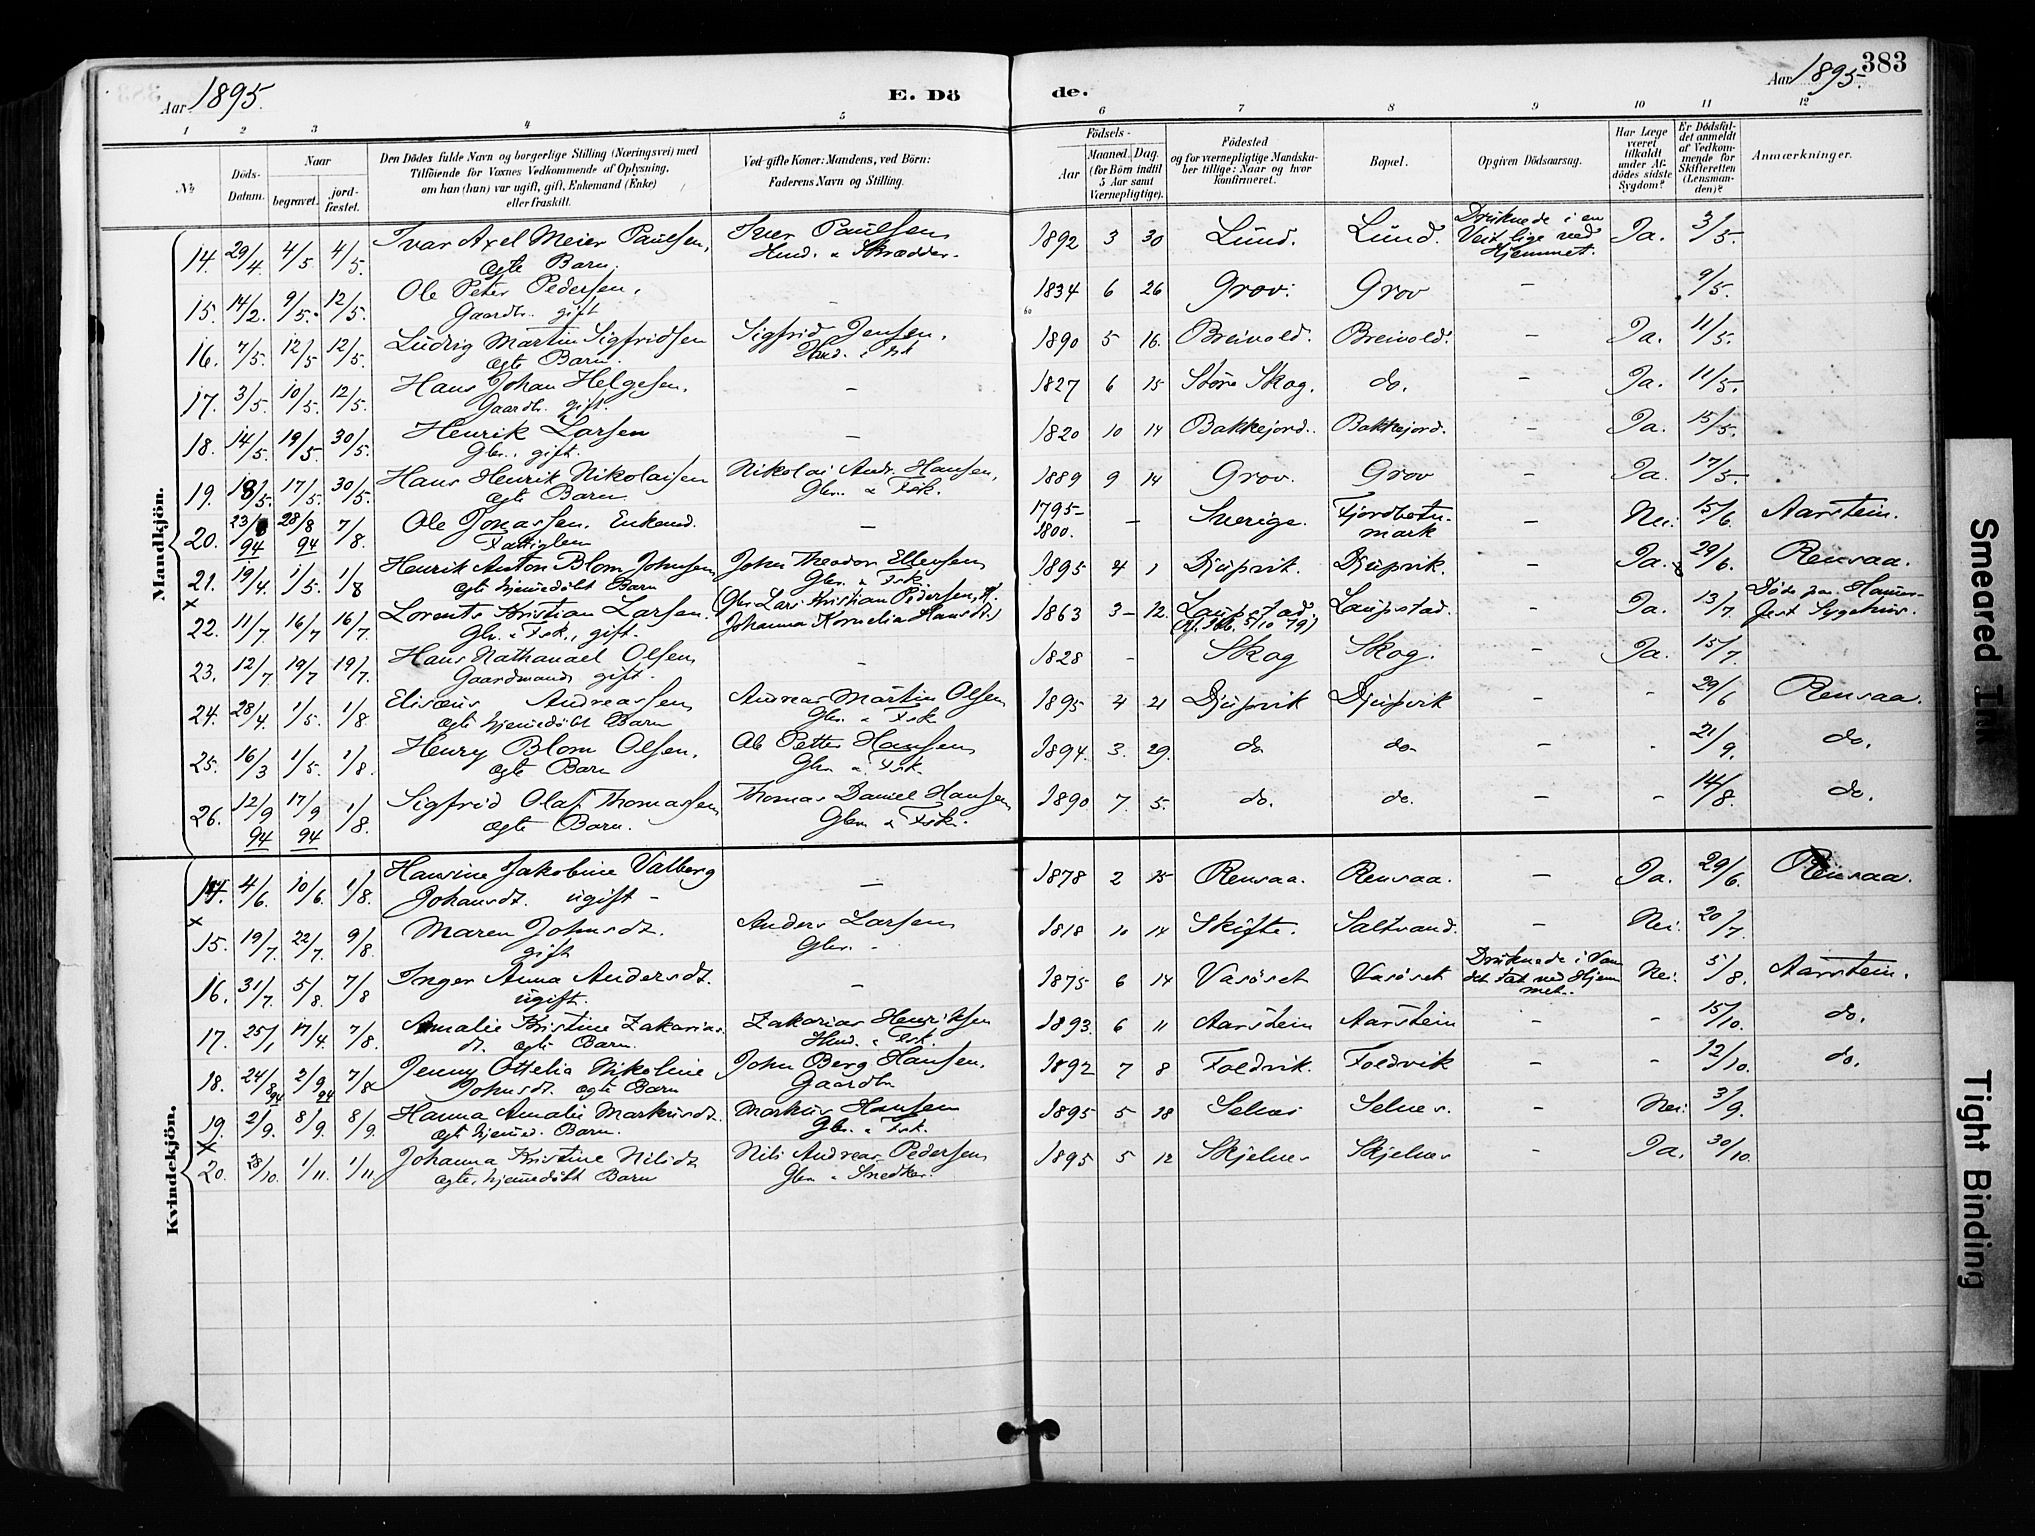 383
Aar 1895.
E. Döde.
Aar 1895.
1 2 3 4 5 6 7 8 9 10 11 12
No
Döds-Datum.
Naar
begravet.
jord-fæstet.
Den Dödes fulde Navn og borgerlige Stilling (Næringsvei) med
Tilföiende for Voxnes Vedkommende af Oplysning,
om han (hun) var ugift, gift, Enkemand (Enke)
eller fraskilt.
Ved gifte Koner: Mandens, ved Börn:
Faderens Navn og Stilling.
Födsels-
Aar
Maaned. Dag.
(for Börn indtil
5 Aar samt
Værnepligtige).
Födested
og for værnepligtige Mandska-
ber tillige: Naar og hvor
konfirmeret.
Bopæl.
Opgiven Dödsaarsag.
Har Læge
været
tilkaldt
under Af-
dödes sidste
Sygdom?
Er Dödsfal-
det anmeldt
af Vedkom-
mende for
Skifteretten
(Lensman-
den)?
Anmærkninger.
Mandkjön.
14. 29/4. 4/5 4/5. Ivar Axel Meier Paulsen, Iver Paulsen 1892 3 30 Lund. Lund. Druknede i en Ja. 3/5.
ægte Barn. Hmd. & Skrædder. Veit lige ved
Hjemmet.
15. 14/2. 9/5. 12/5. Ole Peter Pedersen, – 1834 6 26 Grov. Grov – 9/5.
Gaardbr. gift
16. 7/5. 12/5 12/5. Ludvig Martin Sigfridsen Sigfrid Jensen, 1890 5 16. Breivold. Breivold. – Ja. 11/5.
ægte Barn. Hmd.
17. 3/5. 10/5. 12/5. Hans Johan Helgesen, – 1827 6 15 Store Skog. do. – Ja. 11/5.
Gaardbr. gift.
18. 14/5. 19/5 30/5. Henrik Larsen – 1820 10 14 Bakkejord. Bakkejord. – Ja. 15/5.
Gbr., gift.
19. 18/5. 17/5. 30/5. Hans Henrik Nikolaisen Nikolai Andr. Hansen, 1889 9 14 Grov. Grov – Ja. 17/5.
ægte Barn Gbr. & Fsk.
20. 23/ 94 28/8 94 7/8. Ole Jonassen. Enkemd. – 1795–1800. – Sverige. Fjordbotnmark – Nei. 15/6. Aarstein.
Fattiglem
21. 19/4. 1/5. 1/8 Henrik Anton Blom Johnsen John Theodor Ellevsen 1895 4 1 Djupvik. Djupvik. – Ja. 29/6. Rensaa.
ægte hjemmedøbt Barn Gbr. & Fsk.
x
22. 11/7 16/7 16/7. Lorents Kristian Larsen. (Gbr Lars Kristian Pedersen, 1863 3– 12. Laupstad. Laupstad. Ja. 13/7. Døde paa Hammer-
Gbr. & Fsk., gift. Johanna Kornelia Hansdt.) fest Sygehus.
23. 12/7 19/7 19/7. Hans Nathanael Olsen – 1828 – Skog Skog. – Ja. 15/7.
Gaardmand, gift.
24. 28/4. 1/5. 1/8. Elisæus Andreassen Andreas Martin Olsen 1895 4 21 Djupvik Djupvik – - 29/6 Rensaa.
ægte hjemmedøbt Barn Gbr. & Fsk.
25. 16/3 1/5. 1/8. Henry Blom Olsen. Ole Petter Hansen 1894. 3. 29. do do – - 21/9. do.
ægte Barn Gbr. & Fsk.
26. 12/9 94 17/9 94 1/8. Sigfrid Olaf Thomassen Thomas Daniel Hansen 1890 7. 5. do. do. – – 14/8. do.
ægte Barn. Gbr. & Fsk.
Kvindekjön.
14. 4/6. 10/6. 1/8. Hansine Jakobine Valberg – 1878 2 15 Rensaa. Rensaa. – Ja. 29/6. Rensaa.
Johansdt. ugift –
x
15. 19/7. 22/7. 9/8. Maren Johnsdt. Anders Larsen 1818 10 14 Skifte. Saltvand. – Nei. 20/7.
gift Gbr.
16. 31/7. 5/8. 7/8 Inger Anna Andersdt. – 1875 6 14 Vasöset Vasöset Druknede i Van- Nei. 5/8. Aarstein.
ugift. det tæt ved Hjem-
met.
17. 25/1 17/4. 7/8. Amalie Kristine Zakarias- Zakarias Henriksen 1893. 6 11 Aarstein Aarstein – - 15/10. do.
dt. ægte Barn. Hmd. & Fsk.
18. 24/8 94 2/9 94 7/8 Jenny Ottelia Nikoline John Berg Hansen, 1892 7 8 Foldvik. Foldvik – - 12/10. do.
Johnsdt. ægte Barn Gaardbr
19. 2/9. 8/9. 8/9. Hanna Amalie Markusdt. Markus Hansen 1895 5 18 Selnes Selnes. – Nei. 3/9.
ægte hjemmed. Barn. Gbr. & Fsk.
x
20. /10. 1/11. 1/11. Johanna Kristine Nilsdt Nils Andreas Pedersen 1895 5 12 Skjelnes Skjelnes – Ja. 30/10.
ægte, hjemmedøbt Barn Gbr & Snedker.
Smeared Ink
Tight Binding